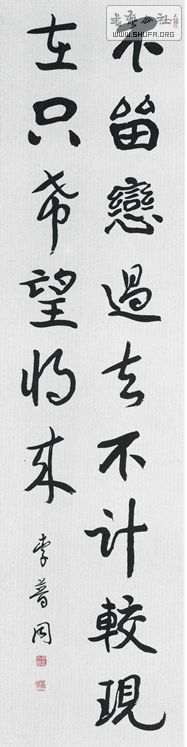 不留戀過去不計較現
在只希望将来
李普同
書法公社
WWW.SHUFA.ORG